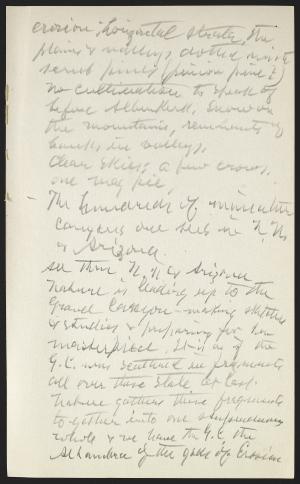 erosion, horizontal strata, the
plains & valleys dotted with
scrub pines (pinion pine?)
no cultivation to speak of
before Albukerk. Snow on
the mountains, remnants of
banks in valleys.
Clear skies, a few crows,
one magpie,
The hundreds of miniature
canyons one sees in N. M.
& Arizona.
all thru N. M. & Arizona
Nature is leading up to the
Grand Canyon - making sketches
& studies & preparing for her
masterpiece. It is as if the
G. C. was scattered in fragments
all over these State at last
Nature gathers these fragments
together into one stupendous
whole & we have the G. C. the
Alhambra of the gods of Erosion